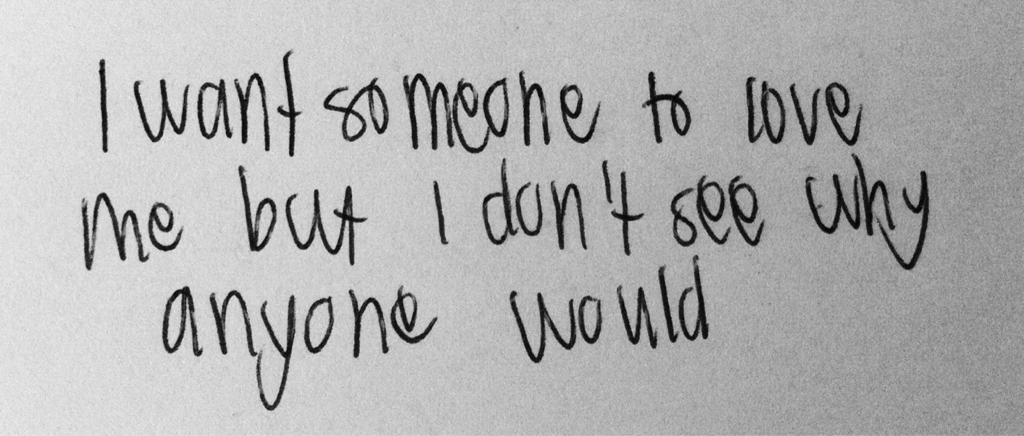 I want someone to love
me but I don't see why
anyone would